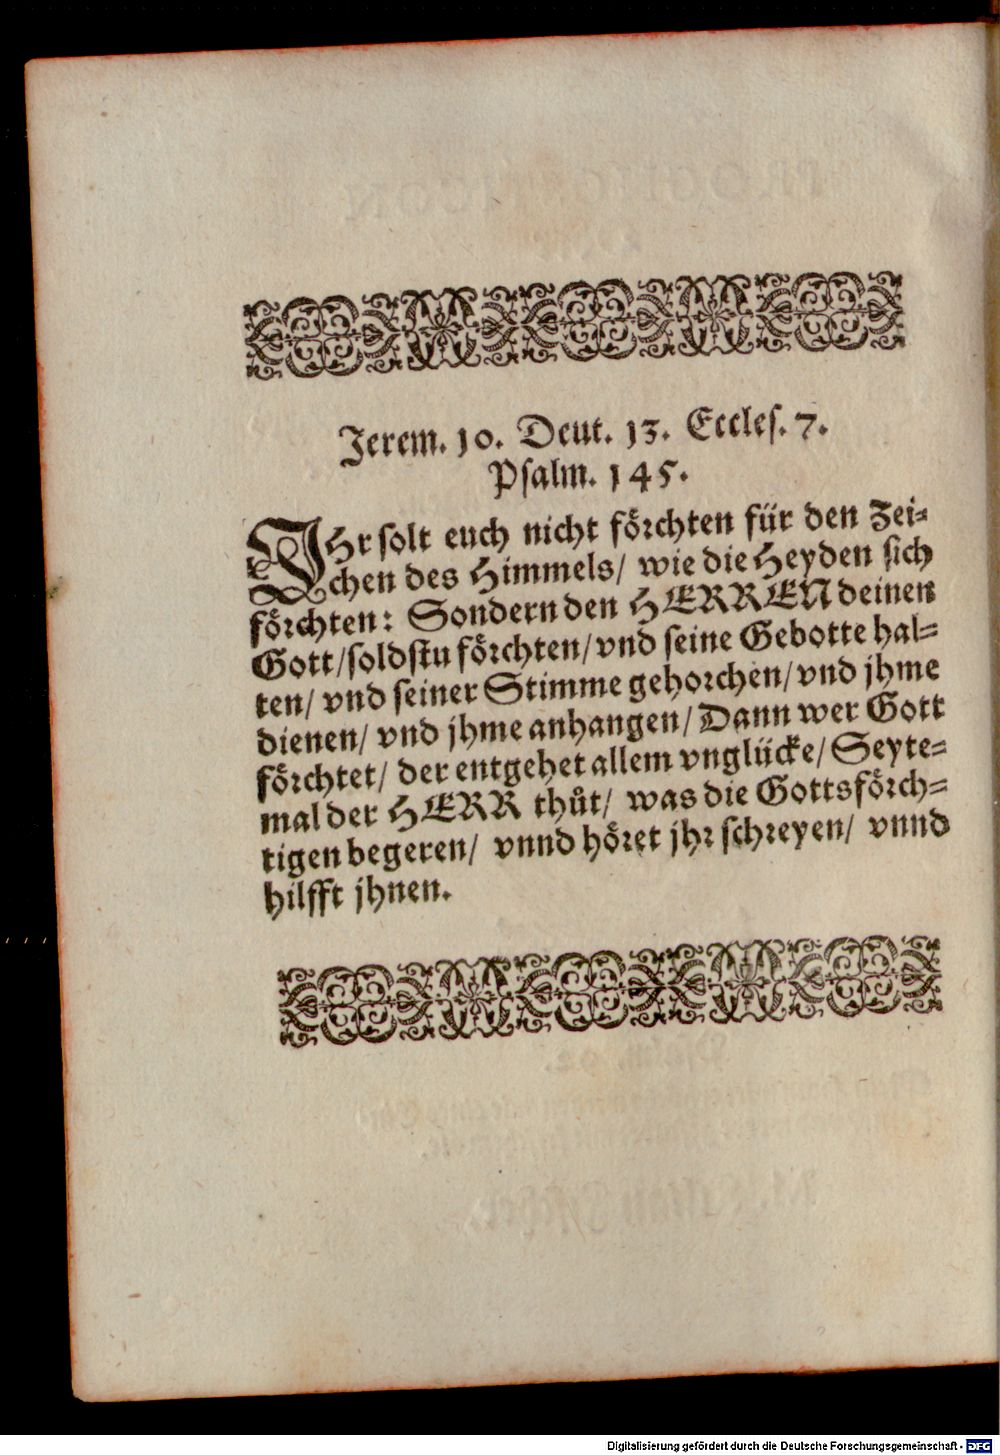 Jerem. 10. Deut. 13. Eccles. 7.
Psalm. 145.
IHr solt euch nicht förchten für den Zei⸗
chen des Himmels/ wie die Heyden sich
förchten: Sondern den HERREN deinen
Gott/ soldstu förchten/ vnd seine Gebotte hal⸗
ten/ vnd seiner Stimme gehorchen/ vnd jhme
dienen/ vnd jhme anhangen/ Dann wer Gott
förchtet/ der entgehet allem vnglücke/ Seyte⸗
mal der HERR thůt/ was die Gottsförch⸗
tigen begeren/ vnnd höret jhr schreyen/ vnnd
hilfft jhnen.
Digitalisierung gefördert durch die Deutsche Forschungsgemeinschaft - DFG